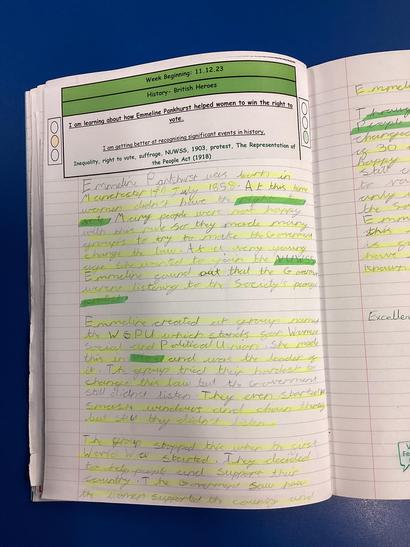 Week Beginning: 11.12.23
History- British Heroes
I am learning about how Emmeline Pankhurst helped women to win the right to
vote.
I am getting better at recognising significant events in history.
Inequality, right to vote, suffrage, NUWSS, 1903, protest, The Representation of
the People Act (1918)
Emmeline Pankhurst was born in
Manchester July 1858. At this time
women didn't have the right
Many people were not happy
with this rule so they made many
groups to try to make the Government
change the law. At a very young
age she wanted to join the NUWSS
Emmeline found out that the Government
were listening to the Society's
Emmeline created a group named
the WSPU which stands for Women
Social and Political Union. She made
this in and was the leader of
it. The group tried their hardest to
change this law but the Government
still didn't listen. They even started to
smash windows and chain
but still they didn't listen.
The group stopped this when the first
World War started. They decided
to help people and support their
country. The Government saw how
the women supported the country and
Emmeli
Throug
People
changed
is 30
happy
still
to vo
only
the
Emm
this
is
have
known
Excellen